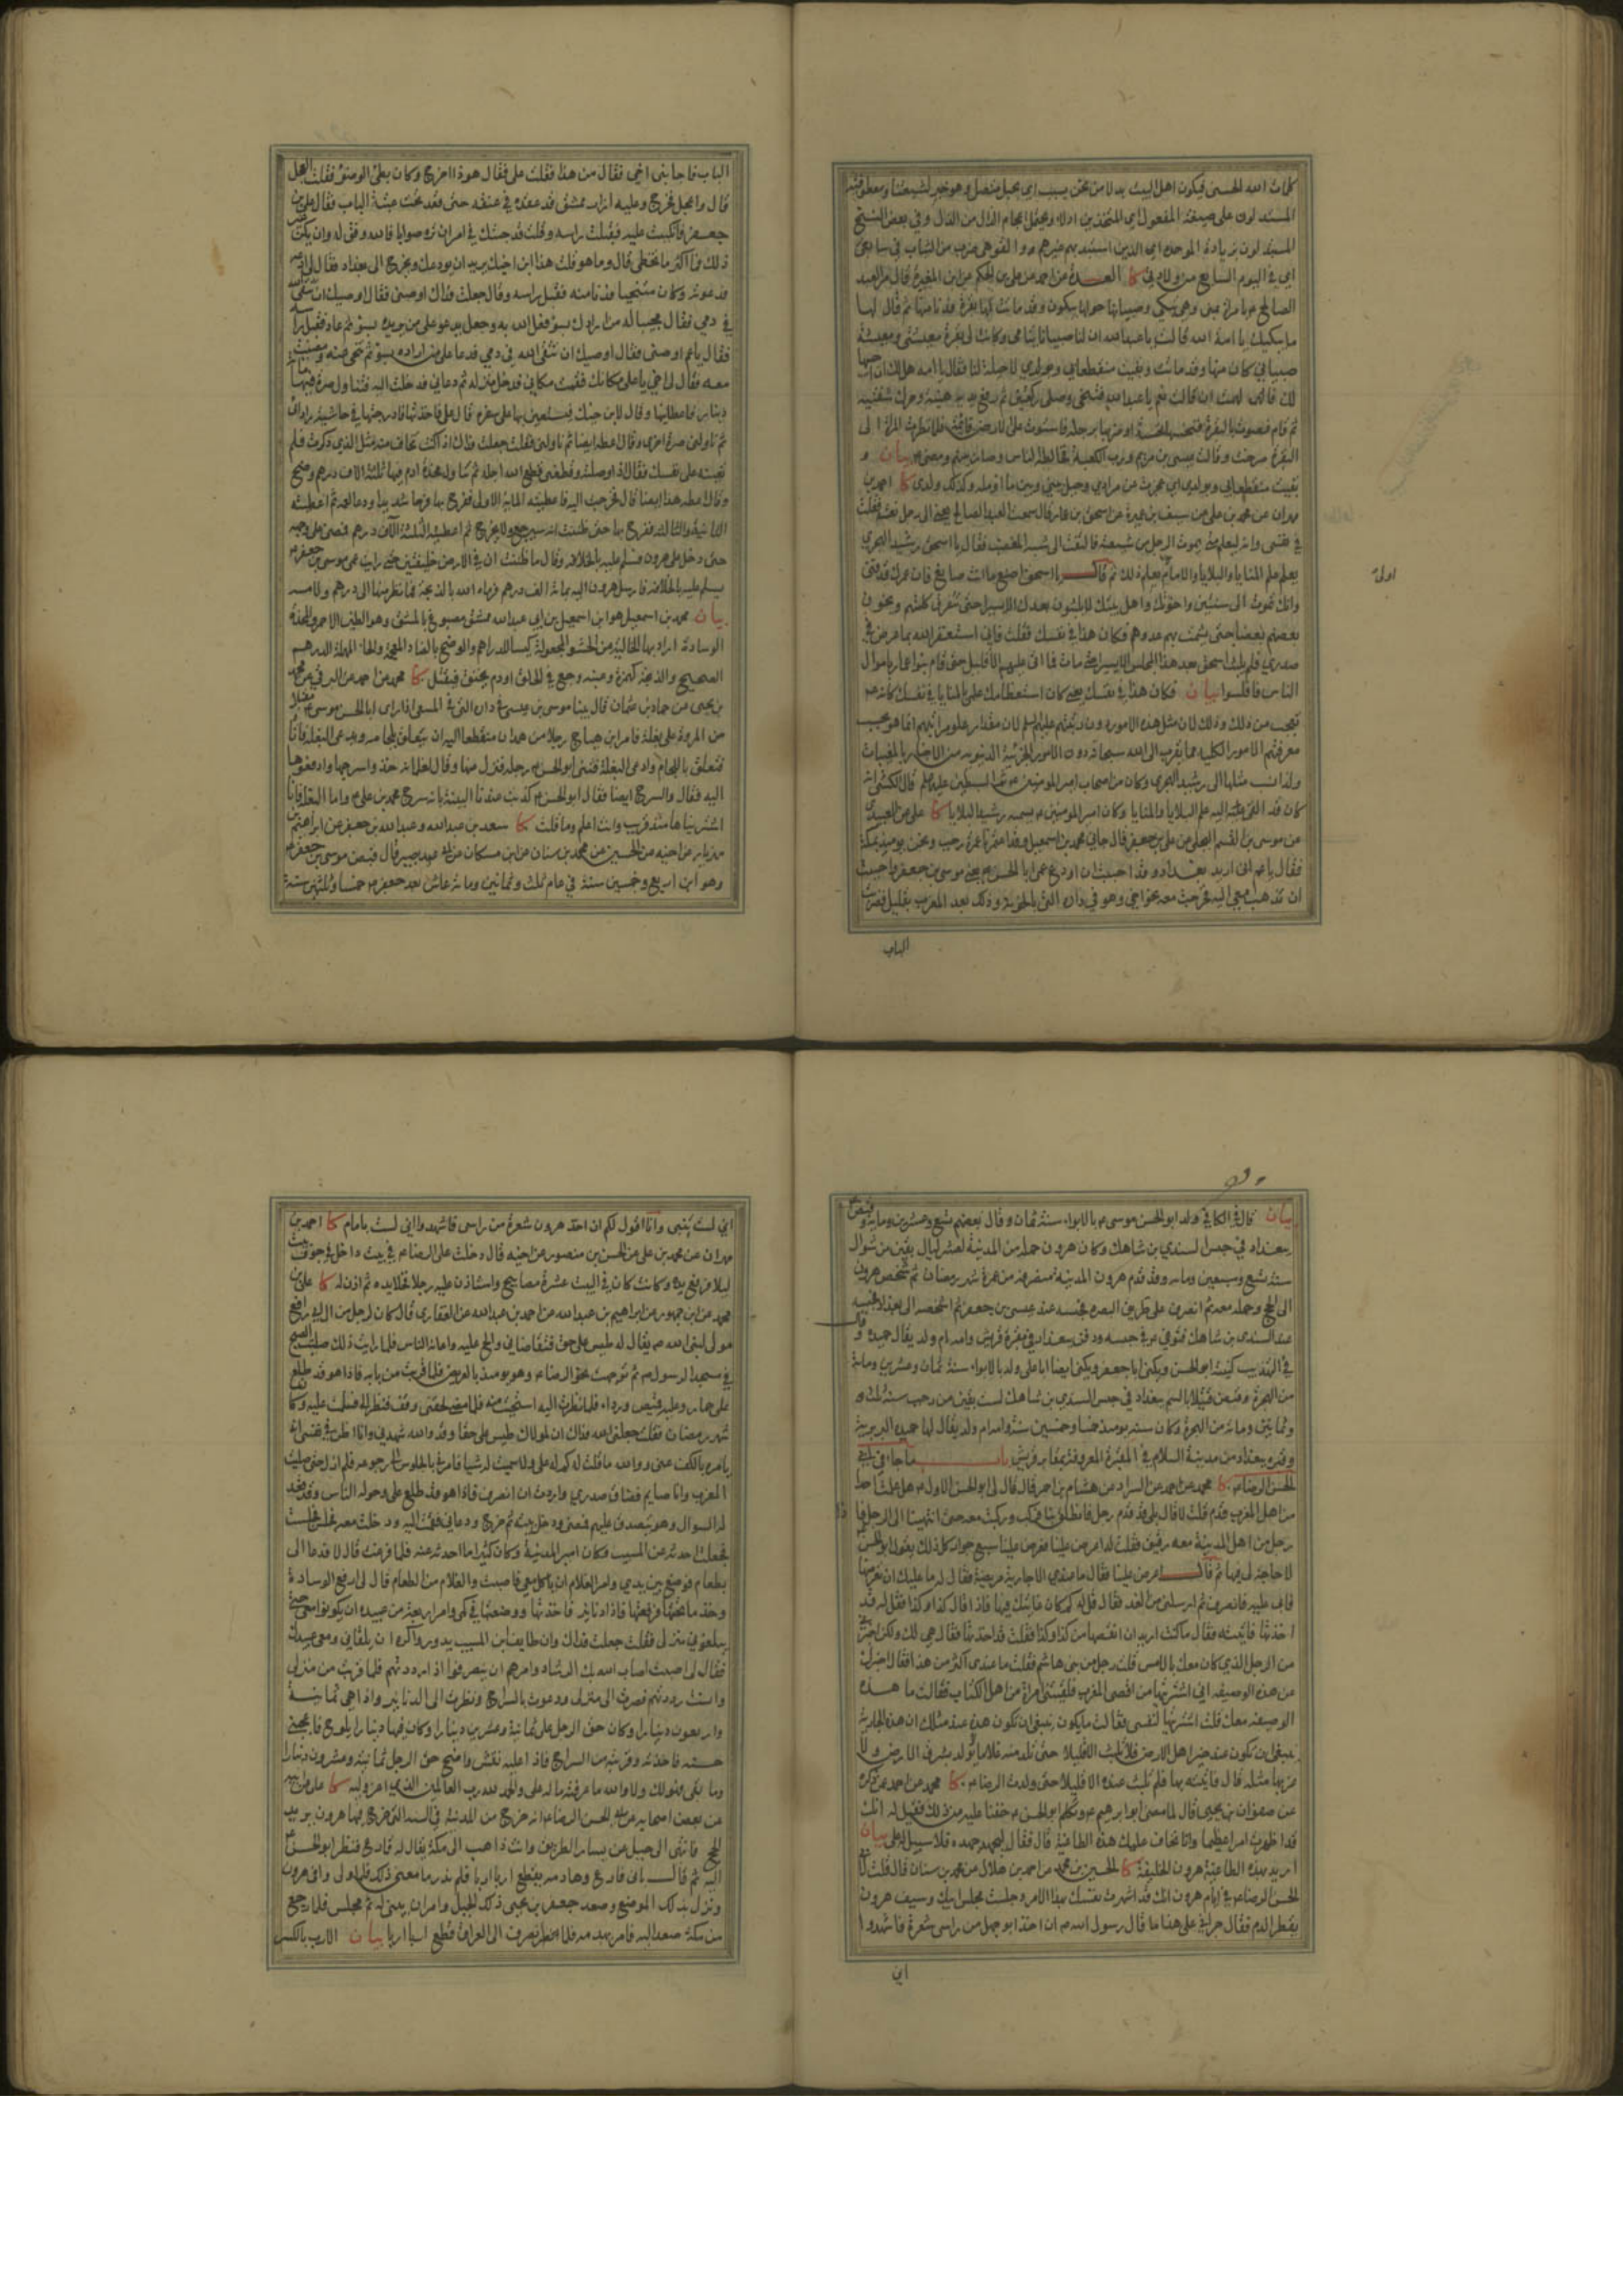 كلمات الله الحسنى فيكون اهل البيت بدلا من نحن بسبب اي بحبل متصل وهو خبر لشيعتنا ومعلق
المستدلون على صيغة المفعول اي المتخذين ادلاء ويحتمل اعجام الذال من الذل وفي بعض النسخ
اي في اليوم السابع من ولادتي كا العدة عن احمد عن علي بن الحكم عن ابن المغيرة قال مر العبد
الصالح م بامراة بمنى وهي تبكي وصبيانها حولها يبكون وقد ماتت لها بقرة فدنا منها ثم قال لها
ما يبكيك يا امة الله قالت يا عبد الله ان لنا صبيانا يتامى وكانت لي بقرة معيشتي ومعيشة
صبياني كان منها وقد ماتت وبقيت منقطعا بي وبولدي لا حيلة لنا فقال يا امة الله هل لك ان احييها
لك قال فالهمت ان قالت نعم يا عبد الله فتنحى وصلى ركعتين ثم رفع يده هنيئة وحرك شفتيه
ثم قام فصوت بالبقرة فنخسها نخسة او ضربها برجله فاستوت على الارض قائمة فلما نظرت المراة الى
البقرة صاحت وقالت عيسى بن مريم ورب الكعبة فخالط الناس وصار بينهم ومضى م بيان و
بقيت منقطعا بي وبولدي اي عجزت عن مرادي وحيل بيني وبين ما اؤمله وكذلك ولدي كا احمد بن
مهران عن محمد بن علي عن سيف بن عميرة عن اسحق بن عمار قال سمعت العبد الصالح ينعى الى رجل نفسه فقلت
في نفسي وانه ليعلم متى يموت الرجل من شيعته فالتفت الي شبه المغضب فقال يا اسحق قد كان رشيد الهجري
يعلم علم المنايا والبلايا والامام اولى بعلم ذلك ثم قال يا اسحق اصنع ما انت صانع فان عمرك قد فنى
وانك تموت الى سنتين واخوتك واهل بيتك لا يلبثون بعدك الا يسيرا حتى تتفرق كلمتهم ويخون
بعضهم بعضا حتى يشمت بهم عدوهم فكان هذا في نفسك فقلت فاني استغفر الله بما عرض في
صدري فلم يلبث اسحق بعد هذا المجلس الا يسيرا حتى مات فما اتى عليهم الا قليل حتى قام بنو عمار باموال
الناس فافلسوا بيان فكان هذا في نفسك يعني كان استعظامك علمي بالمنايا في نفسك
معرفتهم الامور الكلية مما يقرب الى الله سبحانه دون الامور الجزئية الدنيوية من الاخبار بالمغيبات
كان قد القي عليه علم البلايا والمنايا وكان امير المؤمنين م يسميه رشيد البلايا كا علي عن العبيدي
عن موسى بن القسم البجلي عن علي بن جعفر قال جاءني محمد بن اسمعيل وقد اعتمرنا عمرة رجب ونحن يومئذ بمكة
فقال يا عم اني اريد بغداد وقد احببت ان اودع عمي ابا الحسن م يعني موسى بن جعفر فاحببت
ان تذهب معي اليه فخرجت معه نحو اخي وهو في داره التي بالحوبة وذلك بعد المغرب بقليل فضربت
الباب
اولى
الباب فاجابني اخي فقال من هذا فقلت علي فقال هو ذا اخرج وكان بطئ الوضوء فقلت العجل
قال واعجل فخرج وعليه ازار ممشق قد عقده في عنقه حتى قعد تحت عتبة الباب فقال علي بن
جعفر فانكببت عليه فقبلت راسه وقلت قد جئتك في امر ان تره صوابا فالله وفق له وان يكن غير
ذلك فما اكثر ما نخطئ قال وما هو قلت هذا ابن اخيك يريد ان يودعك ويخرج الى بغداد فقال لي ادعه
فدعوته وكان متنحيا فدنا منه فقبل راسه وقال جعلت فداك اوصني فقال اوصيك ان تتقي الله
في دمي فقال مجيبا له من ارادك بسوء فعل الله به وجعل يدعو على من يريده بسوء ثم عاد فقبل راسه
فقال يا عم اوصني فقال اوصيك ان تتقي الله في دمي فدعا على من اراده بسوء ثم تنحى عنه ومضيت
معه فقال لي اخي يا علي مكانك فقمت مكاني فدخل منزله ثم دعاني فدخلت اليه فتناول صرة فيها مائة
دينار فاعطانيها وقال قل لابن اخيك يستعين بها على سفره قال علي فاخذتها فادرجتها في حاشية ردائي
ثم ناولني صرة اخرى وقال اعطه ايضا ثم ناولني فقلت جعلت فداك اذا كنت تخاف منه مثل الذي ذكرت فلم
تعينه على نفسك فقال اذا وصلته وقطعني قطع الله اجله ثم تناول مخدة ادم فيها ثلثة الاف درهم وضح
وقال اعطه هذا ايضا قال فخرجت اليه فاعطيته المائة الاولى ففرح بها فرحا شديدا ودعا لعمه ثم اعطيته
الثانية والثالثة ففرح بها حتى ظننت انه سيرجع ولا يخرج ثم اعطيته الثلثة الاف درهم فمضى على وجهه
حتى دخل على هرون فسلم عليه بالخلافة وقال ما ظننت ان في الارض خليفتين حتى رايت عمي موسى بن جعفر م
يسلم عليه بالخلافة فارسل هرون اليه بمائة الف درهم فرماه الله بالذبحة فما نظر منها الى درهم ولا مسه
بيان محمد بن اسمعيل هو ابن اسمعيل بن ابي عبد الله ممشق مصبوغ بالمشق وهو الطين الاحمر والمخدة
الوسادة
الصحيح والذبحة كهمزة وعنبة وجع في الحلق او دم يخنق فيقتل كا محمد عن احمد عن البرقي عن محمد
بن يحيى عن حماد بن عثمان قال بينا موسى بن عيسى في داره التي في المسعى اذ راى ابا الحسن موسى م مقبلا
من المروة على بغلة فامر ابن هياج رجلا من همدان منقطعا اليه ان يتعلق بلجامه ويدعي البغلة فاتاه
فتعلق باللجام وادعى البغلة فثنى ابو الحسن م رجله فنزل عنها وقال لغلمانه خذوا سرجها وادفعوها
اليه فقال والسرج ايضا فقال ابو الحسن م كذبت عندنا البينة بانه سرج محمد بن علي م واما البغلة فانا
اشتريناها منذ قريب وانت اعلم وما قلت كا سعد بن عبد الله وعبد الله بن جعفر عن ابراهيم بن
مهزيار عن اخيه عن الحسين عن محمد بن سنان عن ابن مسكان عن ابي بصير قال قبض موسى بن جعفر م
وهو ابن اربع وخمسين سنة في عام ثلث وثمانين ومائة عاش بعد جعفر م خمسا وثلثين سنة
بيان قال في الكافي ولد ابو الحسن موسى م بالابواء سنة ثمان وقال بعضهم تسع وعشرين ومائة وقبض
ببغداد في حبس السندي بن شاهك وكان هرون حمله من المدينة لعشر ليال بقين من شوال
سنة تسع وسبعين ومائة وقد قدم هرون المدينة منصرفه من عمرة شهر رمضان ثم شخص هرون
الى الحج وحمله معه ثم انصرف على طريق البصرة فحبسه عند عيسى بن جعفر ثم اشخصه الى بغداد فحبسه
عند السندي بن شاهك فتوفي م في حبسه ودفن ببغداد في مقبرة قريش وامه ام ولد يقال حميدة وقال
في التهذيب كنيته ابو الحسن ويكنى ابا جعفر ويكنى ايضا ابا علي ولد بالابواء سنة ثمان وعشرين ومائة
من الهجرة وقبض قتيلا بالسم ببغداد في حبس السندي بن شاهك لست بقين من رجب سنة ثلث
وثمانين ومائة من الهجرة وكان سنه يومئذ خمسا وخمسين سنة وامه ام ولد يقال لها حميدة البربرية
وقبره ببغداد من مدينة السلام في المقبرة المعروفة بمقابر قريش باب ما جاء في ابي
الحسن الرضا م كا محمد عن احمد عن السراد عن هشام بن احمر قال قال لي ابو الحسن الاول م هل علمت احدا
من اهل المغرب قدم قلت لا قال بلى قد قدم رجل فانطلق بنا فركب وركبت معه حتى انتهينا الى الرجل فاذا
رجل من اهل المدينة معه رقيق فقلت له اعرض علينا فعرض علينا سبع جوار كل ذلك يقول ابو الحسن
لا حاجة لي فيها ثم قال اعرض علينا فقال ما عندي الا جارية مريضة فقال له ما عليك ان تعرضها
فابى عليه فانصرف ثم ارسلني من الغد فقال قل له كم كان غايتك فيها فاذا قال كذا وكذا فقل له قد
اخذتها فاتيته فقال ما كنت اريد ان انقصها من كذا وكذا فقلت قد اخذتها فقال هي لك ولكن اخبرني
من الرجل الذي كان معك بالامس قلت رجل من بني هاشم فقلت ما عندي اكثر من هذا فقال اخبرك
عن هذه الوصيفة اني اشتريتها من اقصى المغرب فلقيتني امراة من اهل الكتاب فقالت ما هذه
الوصيفة معك قلت اشتريتها لنفسي فقالت ما يكون ينبغي ان تكون هذه عند مثلك ان هذه الجارية
ينبغي ان تكون عند خير اهل الارض فلا تلبث الا قليلا حتى تلد منه غلاما يولد بشرق الارض ولا
غربها مثله قال فاتيته بها فلم تلبث عنده الا قليلا حتى ولدت الرضا م كا محمد عن احمد عمن ذكره
عن صفوان بن يحيى قال لما مضى ابو ابرهيم م وتكلم ابو الحسن م خفنا عليه من ذلك فقيل له انك
قد اظهرت امرا عظيما وانا نخاف عليك هذه الطاغية قال فقال ليجهد جهده فلا سبيل له علي بيان
اريد بهذه الطاغية هرون الخليفة كا الحسين بن محمد عن احمد بن هلال عن محمد بن سنان قال قلت لابي
الحسن الرضا م في ايام هرون انك قد اشهرت نفسك بهذا الامر وجلست مجلس ابيك وسيف هرون
يقطر الدم فقال جراني على هذا ما قال رسول الله م ان اخذ ابو جهل من راسي شعرة فاشهدوا
اني
اني لست بنبي وانا اقول لكم ان اخذ هرون شعرة من راسي فاشهدوا اني لست بامام كا احمد بن
مهران عن محمد بن علي عن الحسن بن منصور عن اخيه قال دخلت على الرضا م في بيت داخل في جوف بيت
ليلا فرفع يده وكانت كان في البيت عشرة مصابيح واستاذن عليه رجل فخلا يده ثم اذن له كا علي بن
محمد عن ابن جمهور عن ابراهيم بن عبد الله عن احمد بن عبد الله عن الغفاري قال كان لرجل من ال ابي رافع
مولى النبي م يقال له طيس علي حق فتقاضاني والح علي واعانه الناس فلما رايت ذلك صليت الصبح
في مسجد الرسول م ثم توجهت نحو الرضا م وهو يومئذ بالعريض فلما قربت من بابه فاذا هو قد طلع
على حمار وعليه قميص ورداء فلما نظرت اليه استحييت منه فلما لحقني وقف فنظر الي فسلمت عليه وكان
شهر رمضان فقلت جعلني الله فداك ان لمولاك طيس علي حقا وقد والله شهرني وانا اظن في نفسي انه
يامره بالكف عني ووالله ما قلت له كم له علي ولا سميت له شيئا فامرني بالجلوس الى رجوعه فلم ازل حتى صليت
المغرب وانا صايم فضاق صدري واردت ان انصرف فاذا هو قد طلع علي وحوله الناس وقد قعد
له السوال وهو يتصدق عليهم فمضى ودخل بيته ثم خرج ودعاني فقمت اليه ودخلت معه فجلس وجلست
فجعلت احدثه عن المسيب وكان امير المدينة وكان كثيرا ما احدثه عنه فلما فرغت قال لا فدعا لي
بطعام فوضع بين يدي وامر الغلام ان ياكل معي فاصبت والغلام من الطعام قال لي ارفع الوسادة
وخذ ما تحتها فرفعتها فاذا دنانير فاخذتها ووضعتها في كمي وامر اربعة من عبيده ان يكونوا معي حتى
يبلغوني منزلي فقلت جعلت فداك وان طايف ابن المسيب يدور واكره ان يلقاني ومعي عبيدك
فقال لي اصبت اصاب الله بك الرشاد وامرهم ان ينصرفوا اذا رددتهم فلما قربت من منزلي
وانست رددتهم فصرت الى منزلي ودعوت بالسراج ونظرت الى الدنانير واذا هي ثمانية
واربعون دينارا وكان حق الرجل علي ثمانية وعشرين دينارا وكان فيها دينار يلوح فاعجبني
حسنه فاخذته وقربته من السراج فاذا عليه نقش واضح حق الرجل ثمانية وعشرون دينارا
وما بقي فهو لك ولا والله ما عرفت ما له علي والحمد لله رب العالمين الذي اعز وليه كا علي عن ابيه
عن بعض اصحابه عن ابي الحسن الرضا م انه خرج من المدينة في السنة التي خرج فيها هرون يريد
الحج فانتهى الى جبل عن يسار الطريق وانت ذاهب الى مكة يقال له فارع فنظر ابو الحسن م
اليه ثم قال باني فارع وهادمه يقطع اربا اربا فلم ندر ما معنى ذلك فلما ولى وافى هرون
ونزل بذلك الموضع وصعد جعفر بن يحيى ذلك الجبل وامر ان يبنى له ثم مجلس فلما رجع
من مكة صعد اليه فامر بهدمه فلما انصرف الى العراق قطع اربا اربا بيان الارب بالكسر